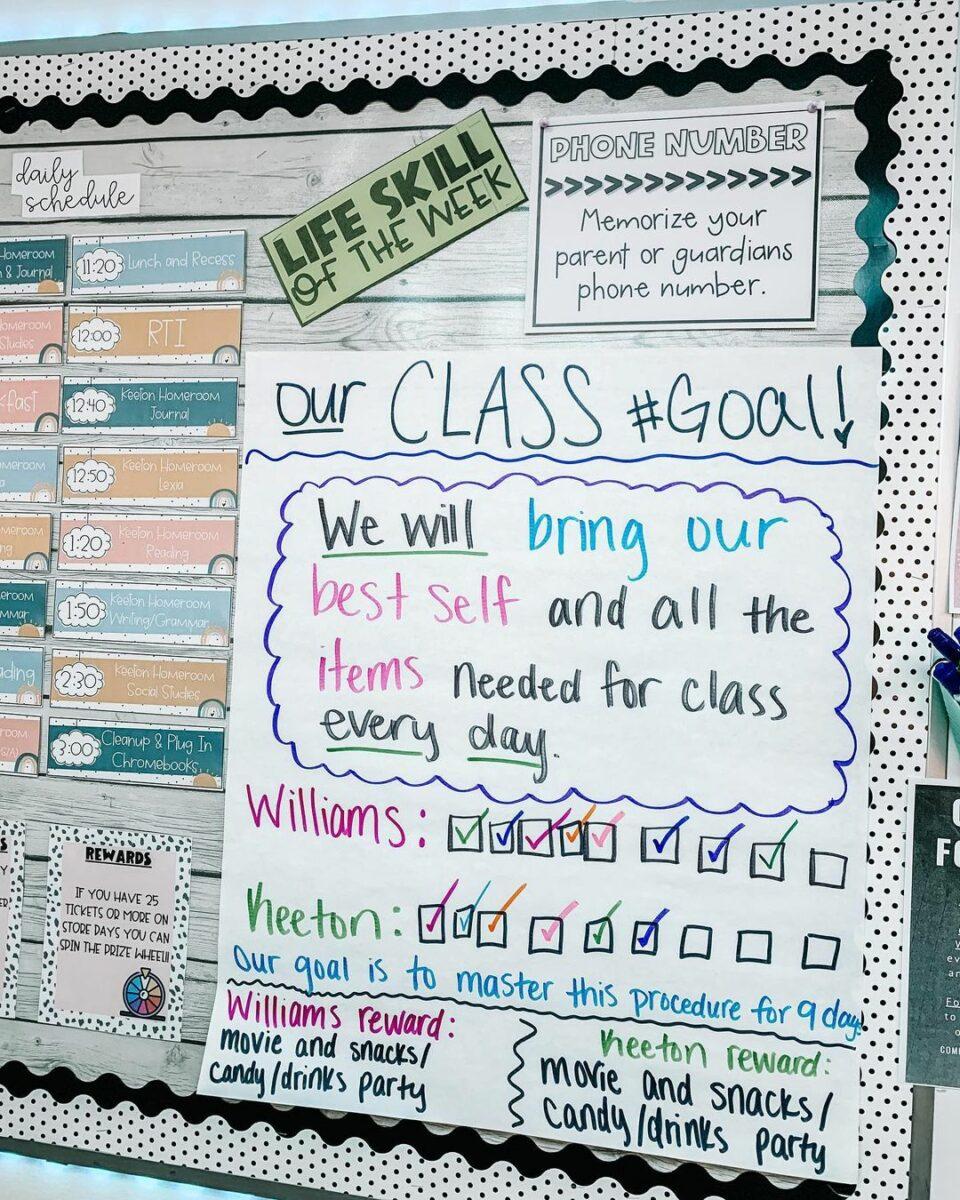 daily
schedule
Homeroom
& Journal
11:20 Lunch and Recess
Homeroom
Studies
12:00 RTI
12:40 Keeton Homeroom
Journal
12:50 Keeton Homeroom
Lexia
1:20 Keeton Homeroom
Reading
1:50 Keeton Homeroom
Writing/Grammar
2:30 Keeton Homeroom
Social Studies
3:00 Cleanup & Plug In
Chromebooks
REWARDS
IF YOU HAVE 25
TICKETS OR MORE ON
STORE DAYS YOU CAN
SPIN THE PRIZE WHEEL!!
LIFE SKILL
OF THE WEEK
PHONE NUMBER
>>>>>>>>>>>>>
Memorize your
parent or guardians
phone number.
Our CLASS #Goal!
We will bring our
best self and all the
items needed for class
every day.
Williams:
Keeton:
Our goal is to master this procedure for 9 days!
Williams reward:
movie and snacks/
candy/drinks party
Keeton reward:
movie and snacks/
candy/drinks party